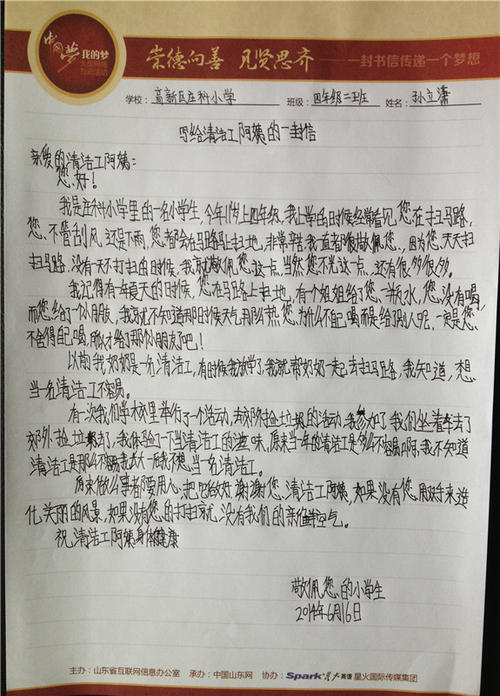 中国梦
我的梦
大型网络
互动活动
崇德向善 见贤思齐 一封书信传递一个梦想
学校：高新区庄科小学 班级：四年级二班 姓名：孙立潇
写给清洁工阿姨的一封信
亲爱的清洁工阿姨：
您好！
我是庄科小学里的一名小学生，今年11岁上四年级，我上学的时候经常看见，您在扫马路，
您不管刮风还是下雨，您都会在马路上扫地，非常辛苦我一直都很敬佩您，因为您，天天扫
扫马路，没有一天不打扫的时候，我就敬佩您这点，当然您不光这一点，还有很多很多。
我记得有一年夏天的时候，您在马路上扫地，有个姐姐给了您一瓶水，您没有喝，
而您给了一个小朋友，我就不知道那时候天气那么热您为什么不自己喝而是给别人呢，一定是您
不舍得自己喝，所以才给了那个小朋友了吧！
以前我奶奶是一名清洁工，有时候我放学了，我就帮奶奶一起去扫马路，我知道，想
当一名清洁工不容易。
有一次我们学校里举行了一个活动，去郊外捡垃圾的活动，我参加了，我们坐着车去了
郊外捡垃圾去了，我体验了一下当清洁工的滋味，原来当一年的清洁工是多么不容易啊，我不知道
清洁工是那么不容易我长大一后我不想当一名清洁工。
原来做什么事者要用心，把它做好，谢谢您，清洁工阿姨，如果没有您，用双手来造
化美丽的风景，如果没有您的打扫就，没有我们的新鲜空气。
祝清洁工阿姨身体健康
敬佩您的小学生
2014年6月16日
主办：山东省互联网信息办公室 承办：中国山东网 协办：Spark星火英语 星火国际传媒集团